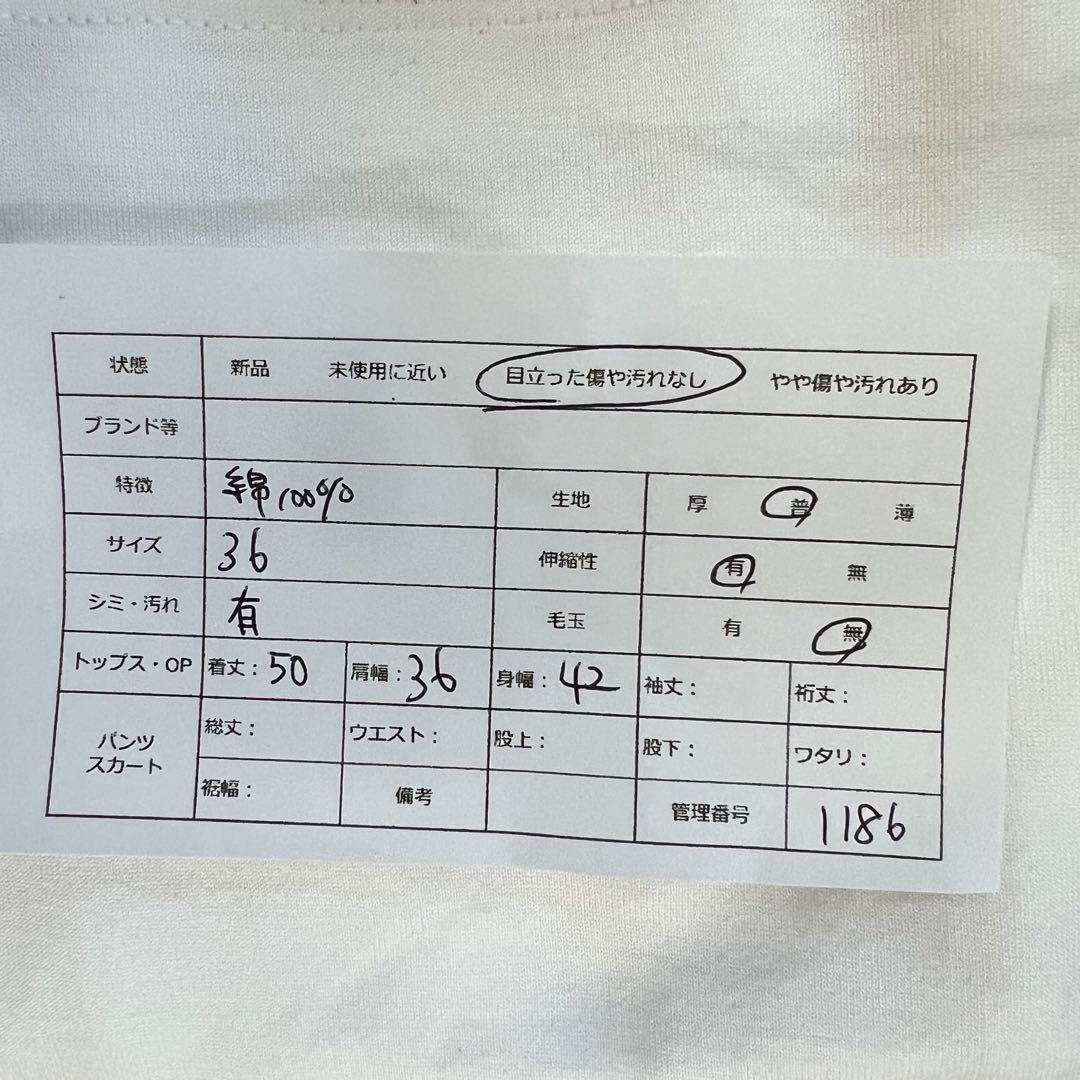 状態 新品 未使用に近い 目立った傷や汚れなし やや傷や汚れあり
ブランド等
特徴 綿100% 生地 厚 普 薄
サイズ 36 伸縮性 有 無
シミ・汚れ 有 毛玉 有 無
トップス・OP 着丈：50 肩幅：36 身幅：42 袖丈： 裄丈：
パンツ
スカート
総丈： ウエスト： 股上： 股下： ワタリ：
裾幅： 備考 管理番号 1186